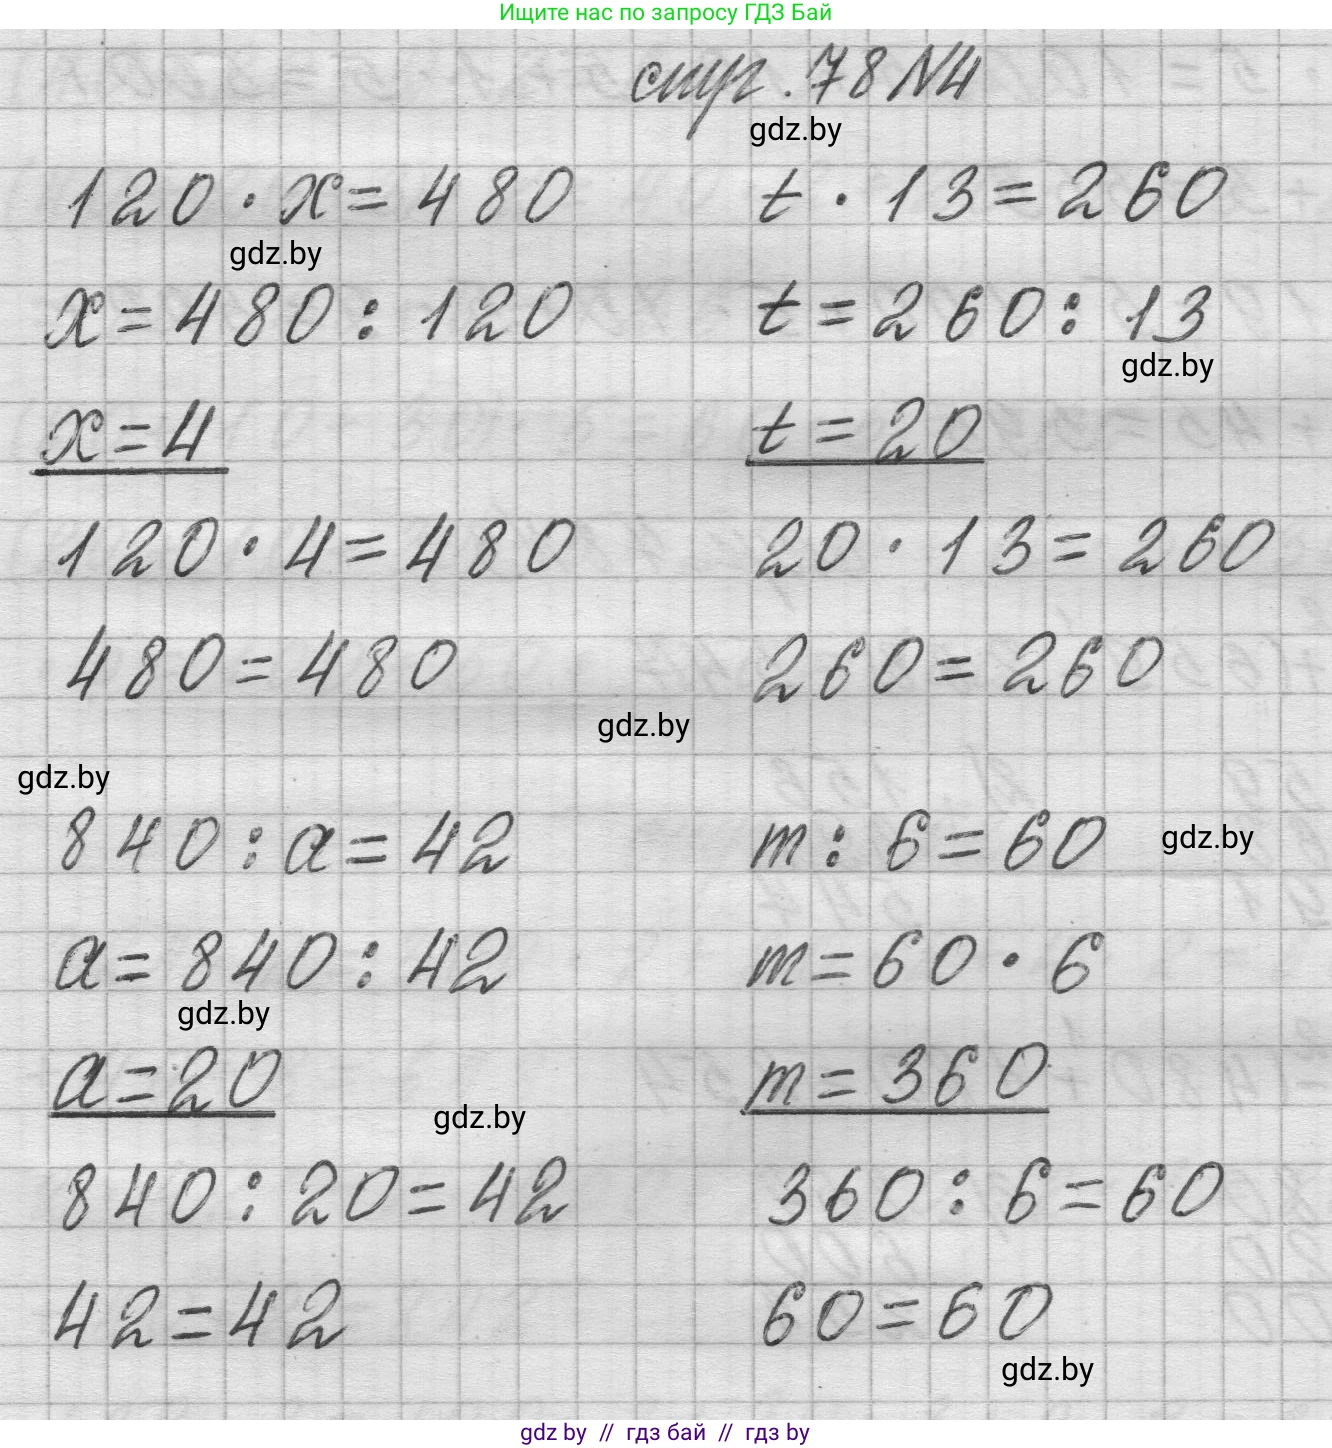 Ищите нас по запросу ГДЗ Бай
стр. 78 №4
gdz.by
120 · x = 480
t · 13 = 260
gdz.by
x = 480 : 120
t = 260 : 13
gdz.by
x = 4
t = 20
120 · 4 = 480
20 · 13 = 260
480 = 480
260 = 260
gdz.by
gdz.by
840 : a = 42
m : 6 = 60
gdz.by
a = 840 : 42
m = 60 · 6
gdz.by
a = 20
m = 360
gdz.by
840 : 20 = 42
360 : 6 = 60
42 = 42
60 = 60
gdz.by
gdz by // гдз бай // гдз by